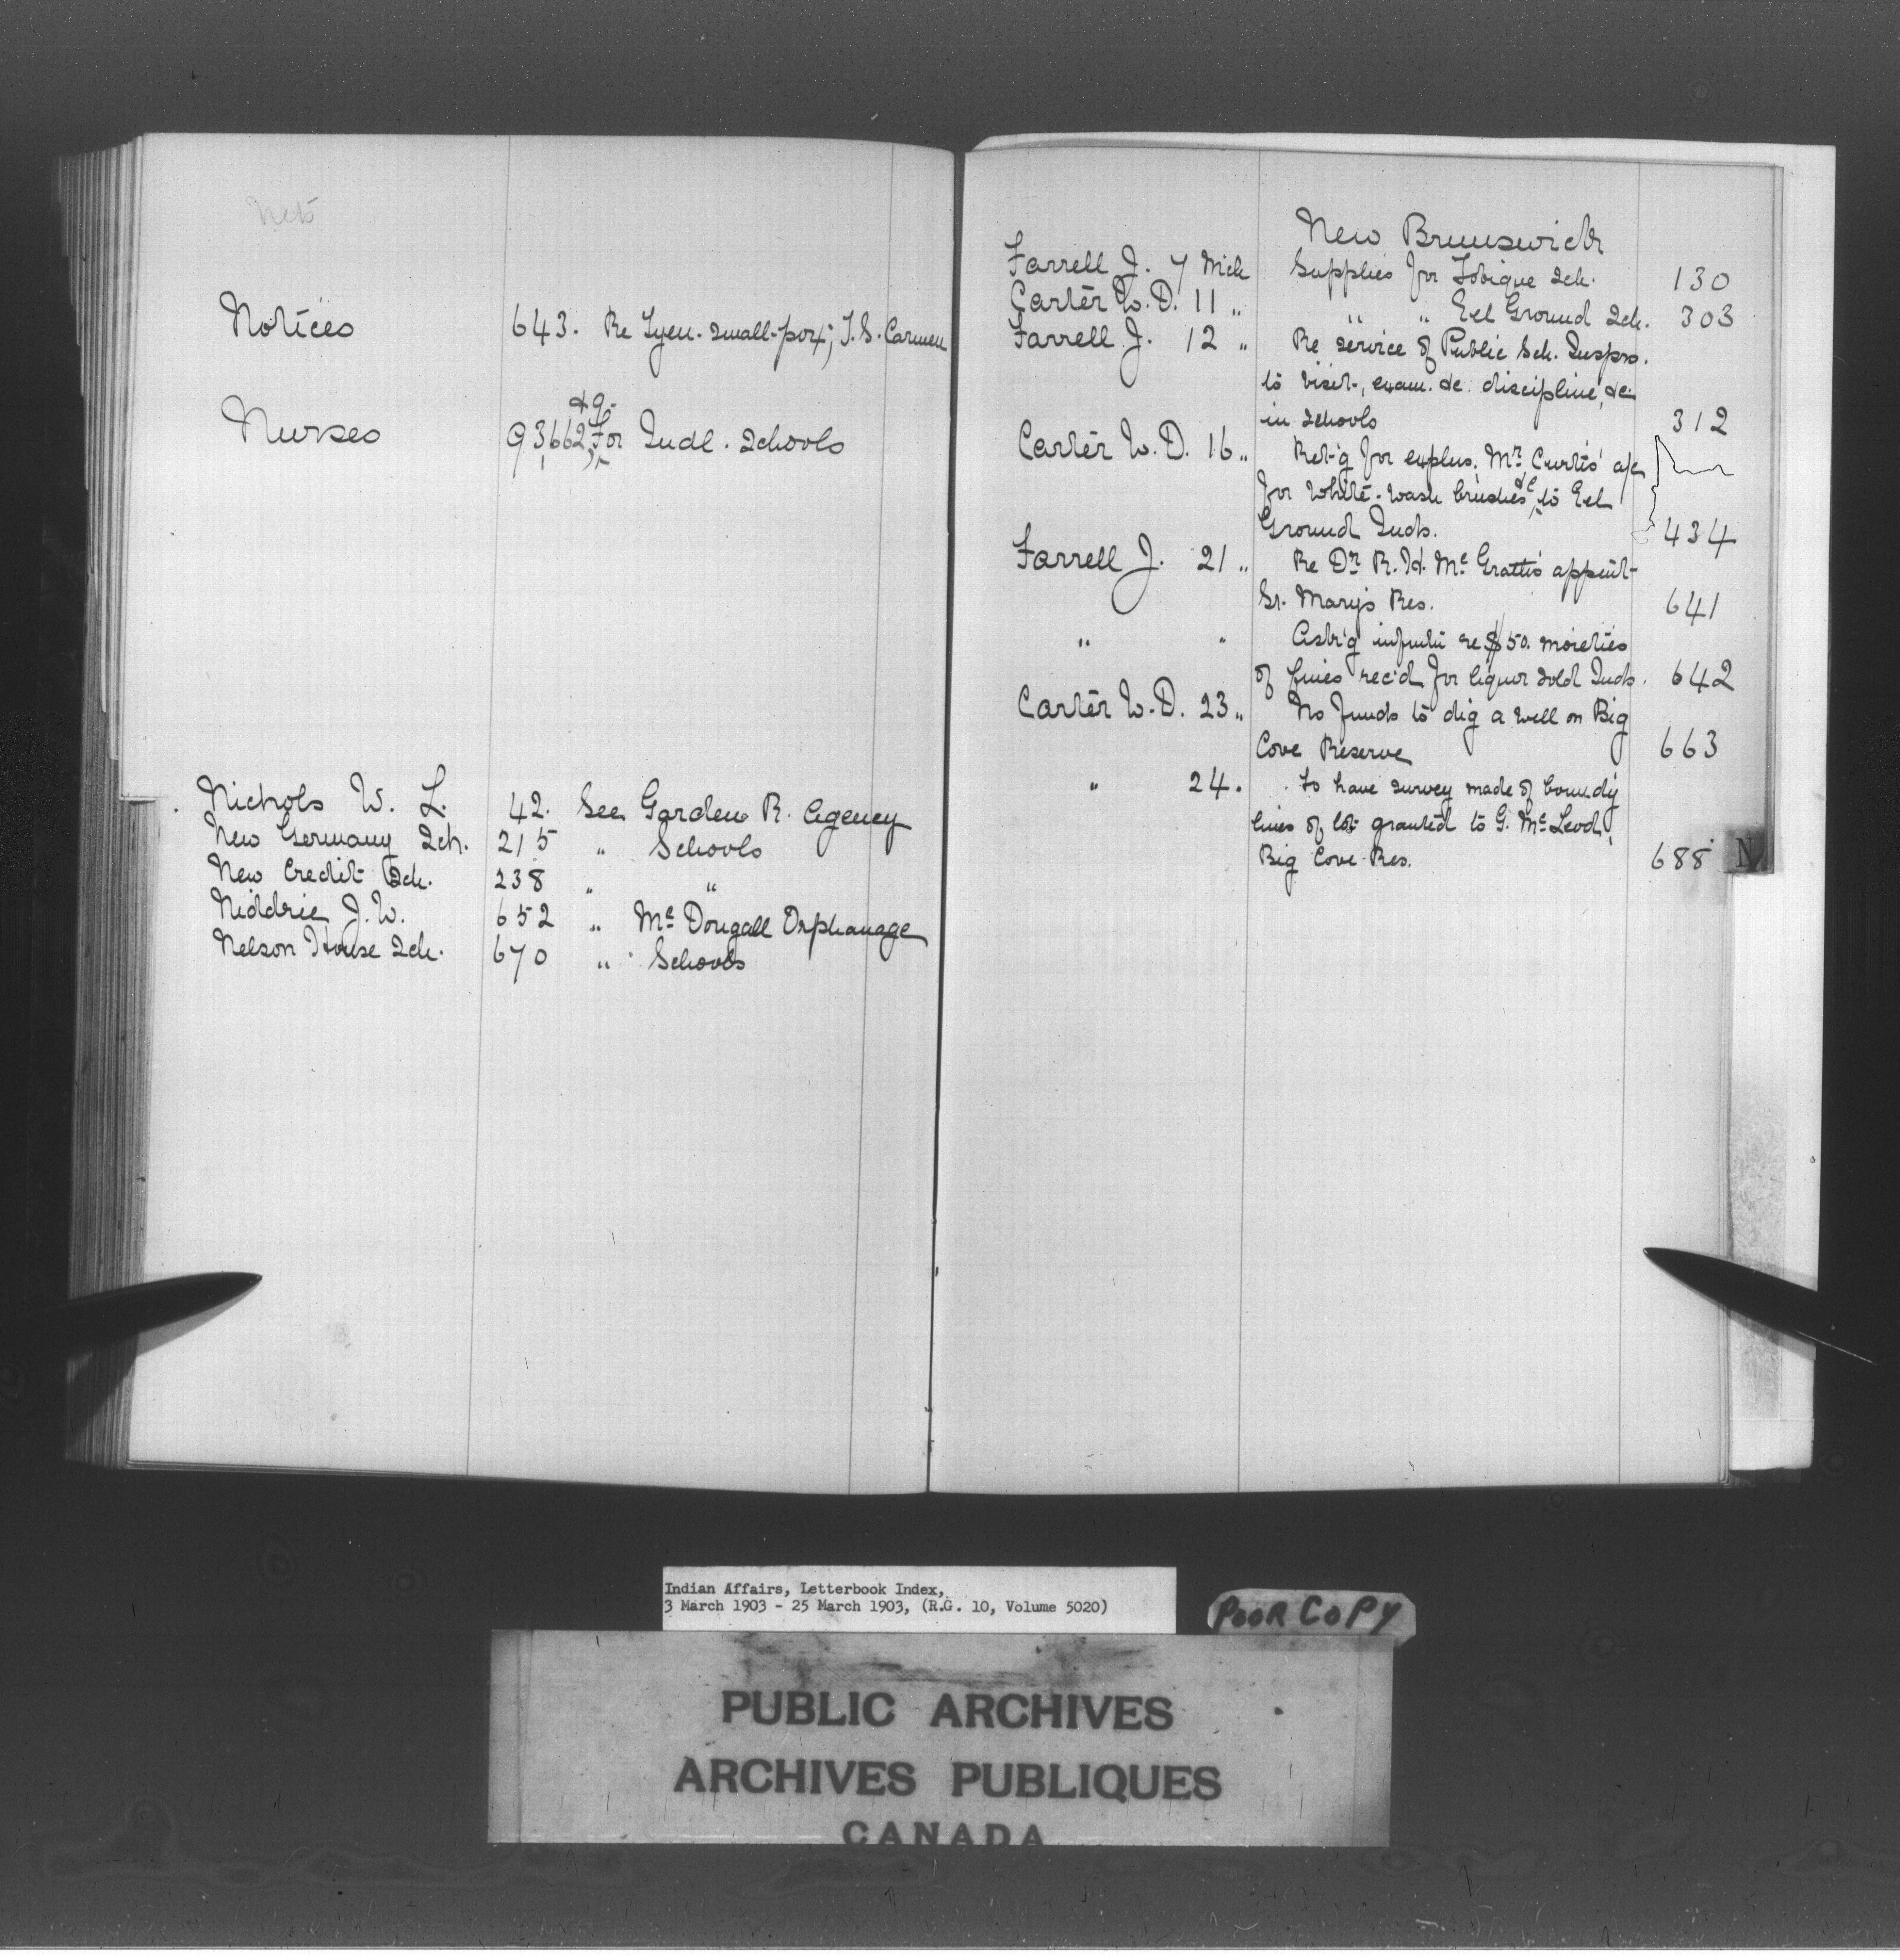 Nets
Notices 643. Re Tyen. small-pox; J. S. Carmen
&9.
Nurses 93,662, For Indl. Schools
Nichols W. L. 42. See Garden R. Agency
New Germany Sch. 215 " Schools
New Credit Sch. 238 " "
Niddrie J. W. 652 " Mc Dougall Orphanage
Nelson House Sch. 670 " Schools
New Brunswick
Farrell J. 7 Mch Supplies for Tobique Sch. 130
Carter W. D. 11 " " " Eel Ground Sch. 303
Farrell J. 12 " Re service of Public Sch. Inspro.
to visit, exam. &c. discipline, &c
in Schools 312
Carter W. D. 16 " Ret'g for explns. Mr. Curtis' a/c
for White-wash brushes &c to Eel
Ground Inds. 434
Farrell J. 21 " Re Dr. R. H. Mc Grath's appmt-
St. Mary's Res. 641
" " Ask'g infmtn re $50. moieties
of fines rec'd for liquor sold Inds. 642
Carter W. D. 23 " No funds to dig a well on Big
Cove Reserve 663
" 24. To have survey made of boundy
lines of lot granted to G. Mc Leod,
Big Cove Res. 688
N
Indian Affairs, Letterbook Index,
3 March 1903 - 25 March 1903, (R.G. 10, Volume 5020)
POOR COPY
PUBLIC ARCHIVES
ARCHIVES PUBLIQUES
CANADA